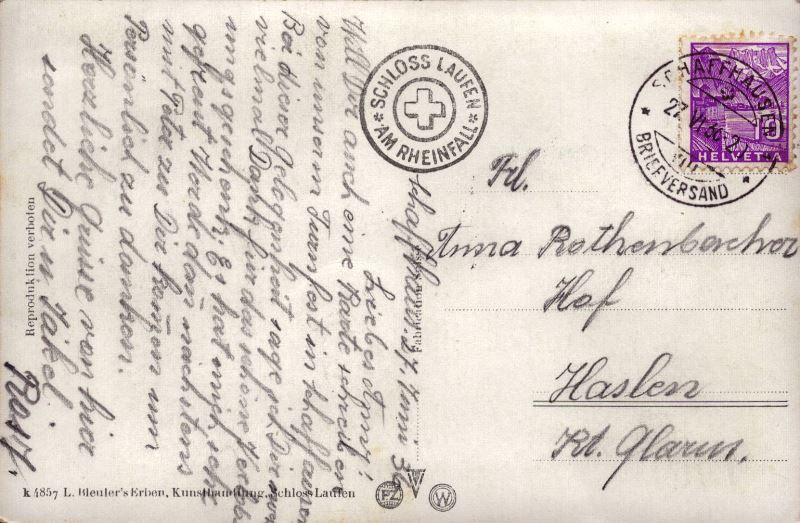 Schaffhausen, 27. Juni 36
Liebes Anny!
Will Dir auch eine Karte schreiben
von unserm Turnfest in Schaffhausen
Bei dieser Gelegenheit sage ich Dir noch
vielmal Dank für das schöne
umgschenk. Es hat mich sehr
gefreut. Werde dañ nächstens
mit Peter zu Dir kom̃en um
Persönlich zu danken.
Herzliche Grüsse von hier
sendet Dir
Rösy.
SCHLOSS LAUFEN
AM RHEINFALL
SCHAFFHAUSEN
27.VI.36
BRIEFVERSAND
HELVETIA
Frl.
Anna Rothenbacher
Hof
Haslen
Kt. Glarus.
Reproduktion verboten
Fabrication Suisse
k 4857 L. Bleuler's Erben, Kunsthandlung, Schloss Laufen
PZ
W